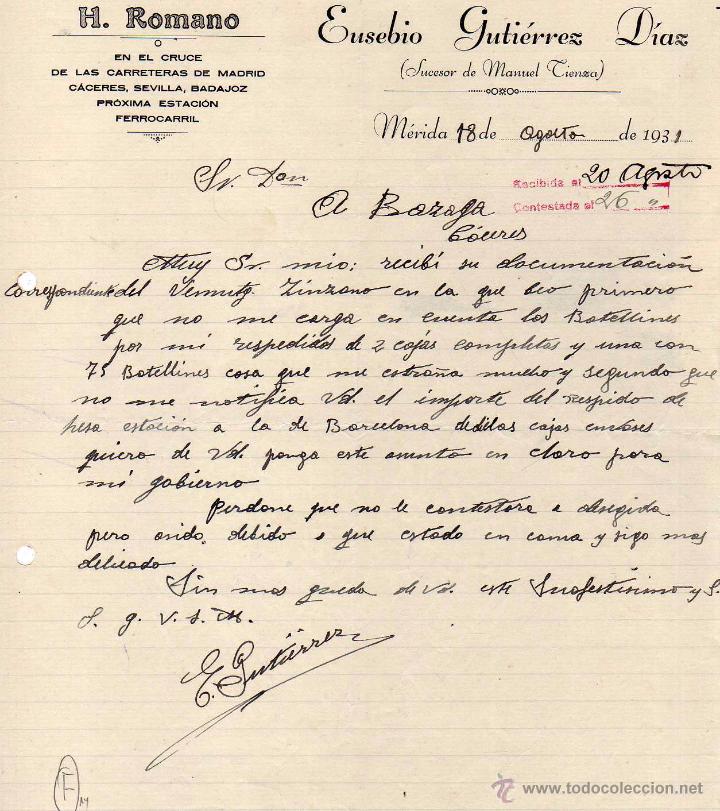 H. Romano
EN EL CRUCE
DE LAS CARRETERAS DE MADRID
CÁCERES, SEVILLA, BADAJOZ
PRÓXIMA ESTACIÓN
FERROCARRIL
Eusebio Gutiérrez Díaz
(Sucesor de Manuel Tienza)
Mérida 18 de Agosto de 1931
Recibida el 20 Agosto
Contestada el 26 "
Sr. Don
A Bazaga
Cáceres
Muy Sr. mio: recibí su documentación
Correspondiente del Vermutz. Zinzano en la que beo primero
que no me carga en cuenta los Botellines
por mi respedidos de 2 cajas completas y una con
75 Botellines cosa que me estraña mucho y segundo que
no me notifica Vd. el importe del respido de
hesa estación a la de Barcelona cajas embases
quiero de Vd. ponga este asunto en claro para
mi gobierno
Perdone que no le contestara a
pero asido, debido a que estado en cama y sigo mas
delicado
Sin mas queda de Vd. este y S.
S. q. V. S. M.
E. Gutiérrez
F
www.todocoleccion.net